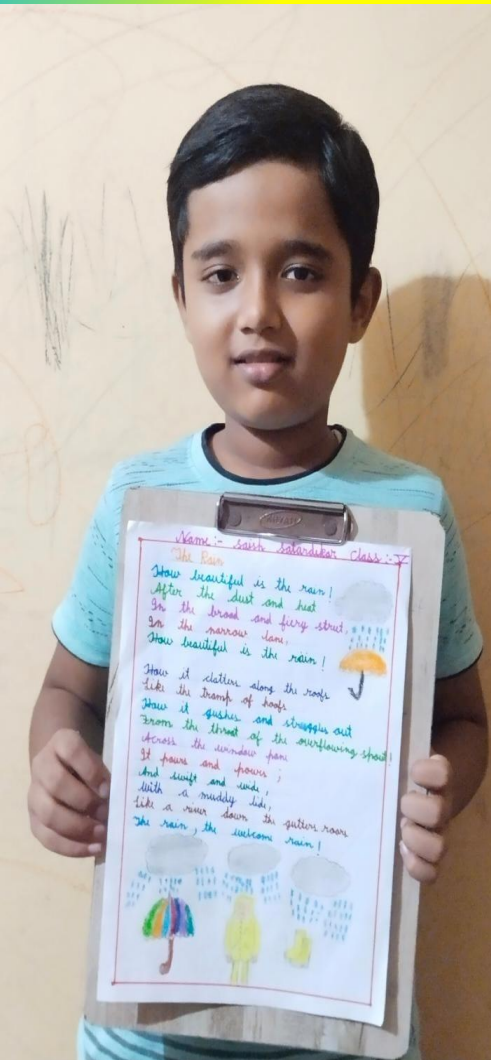 Name :- Saish Satardekar Class :- V
The Rain
How beautiful is the rain!
After the dust and heat
In the broad and fiery stret,
In the narrow lane,
How beautiful is the rain!
How it clatters along the roofs
Like the tramp of hoofs
How it gushes and struggles out
From the throat of the overflowing spout!
Across the window pane
It pours and pours ;
And swift and wide,
With a muddy tide,
Like a river down the gutters roars
The rain, the welcome rain!